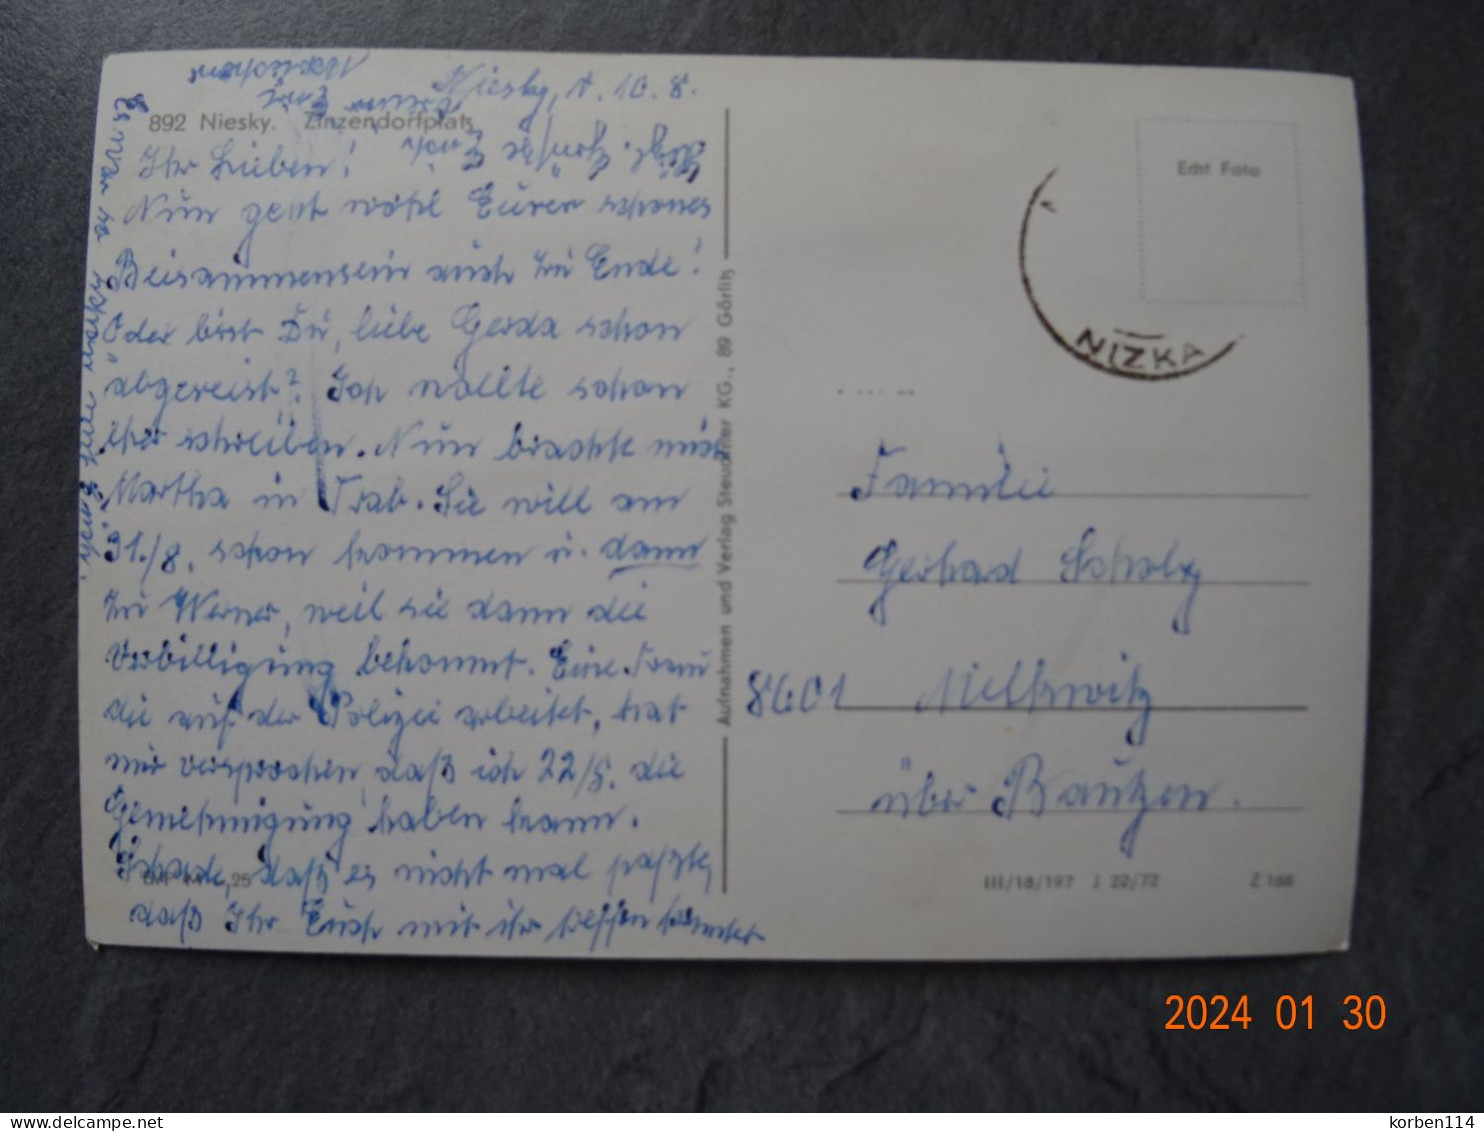 892 Niesky. Zinzendorfplatz
Niesky, d. 10. 8.
Ihr Lieben!
Nun geht wohl Euer schönes
Beisammensein auch zu Ende!
Oder bist Du, liebe Gerda schon
abgereist? Ich wollte schon
eher schreiben. Nun brachte mich
Martha in Trab. Sie will am
31./8. schon kommen u. dann
zu Werner, weil sie dann die
Verbilligung bekommt. Eine Frau
die auf der Polizei arbeitet, hat
mir versprochen, daß ich 22/8. die
Genehmigung haben kann.
Schade, daß es nicht mal paßte,
daß Ihr Euch mit ihr treffen konntet
Es war so
Herzl. Grüße Euch
Eure
Aufnahmen und Verlag Steudtner KG., 89 Görlitz
Echt Foto
NIZKA
Familie
Gerhard Scholz
8601 Milkwitz
über Bautzen.
25
III/18/197 J 22/72 Z 168
2024 01 30
delcampe.net
korben114